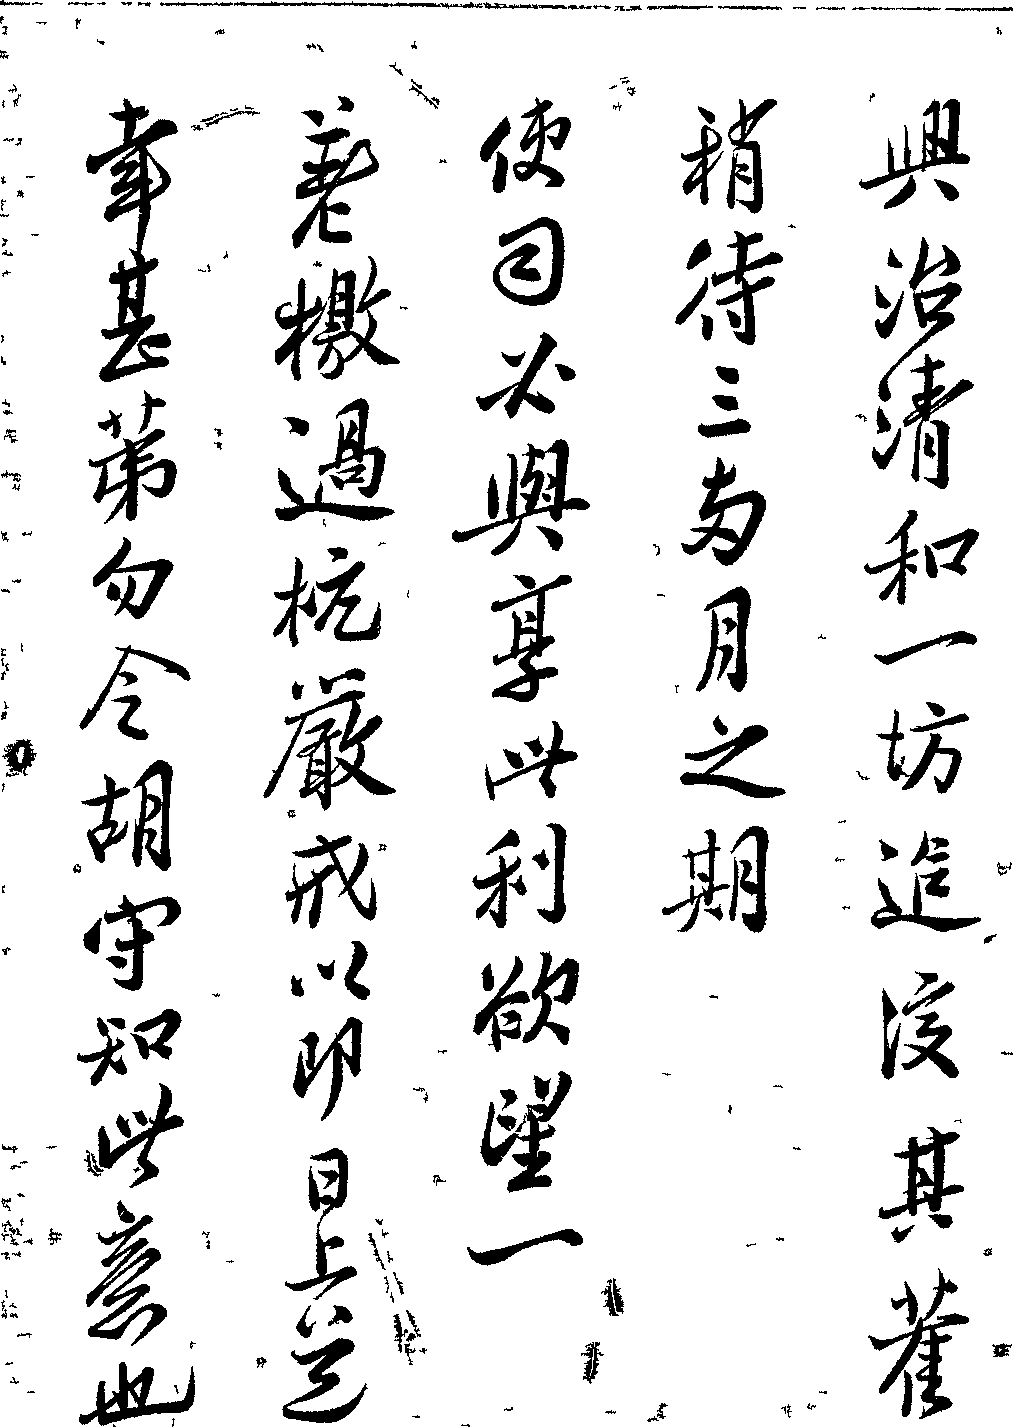 興治清和一坊追沒其舊
稍待三两月之期
使司必與享此利欲望一
差檄過杭嚴戒以即日上道
幸甚第勿令胡守知此意也